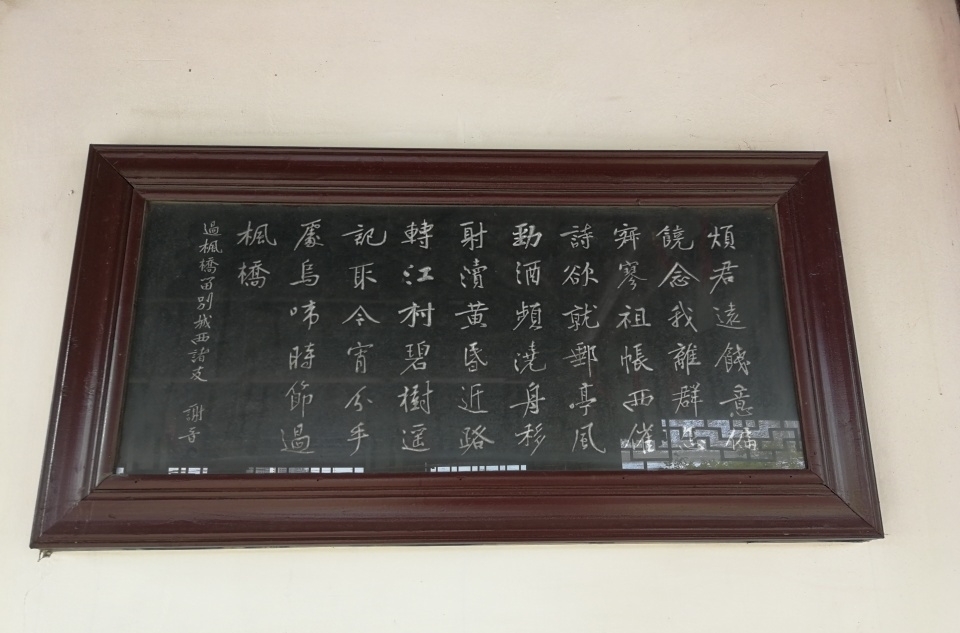 煩君遠餞意偏
饒念我離群思
寂寥祖帳西催
詩欲就郵亭風
勁酒頻澆舟移
射瀆黃昏近路
轉江村碧樹遥
記取今宵分手
處烏啼時節過
楓橋
過楓橋留別城西諸友 謝晋